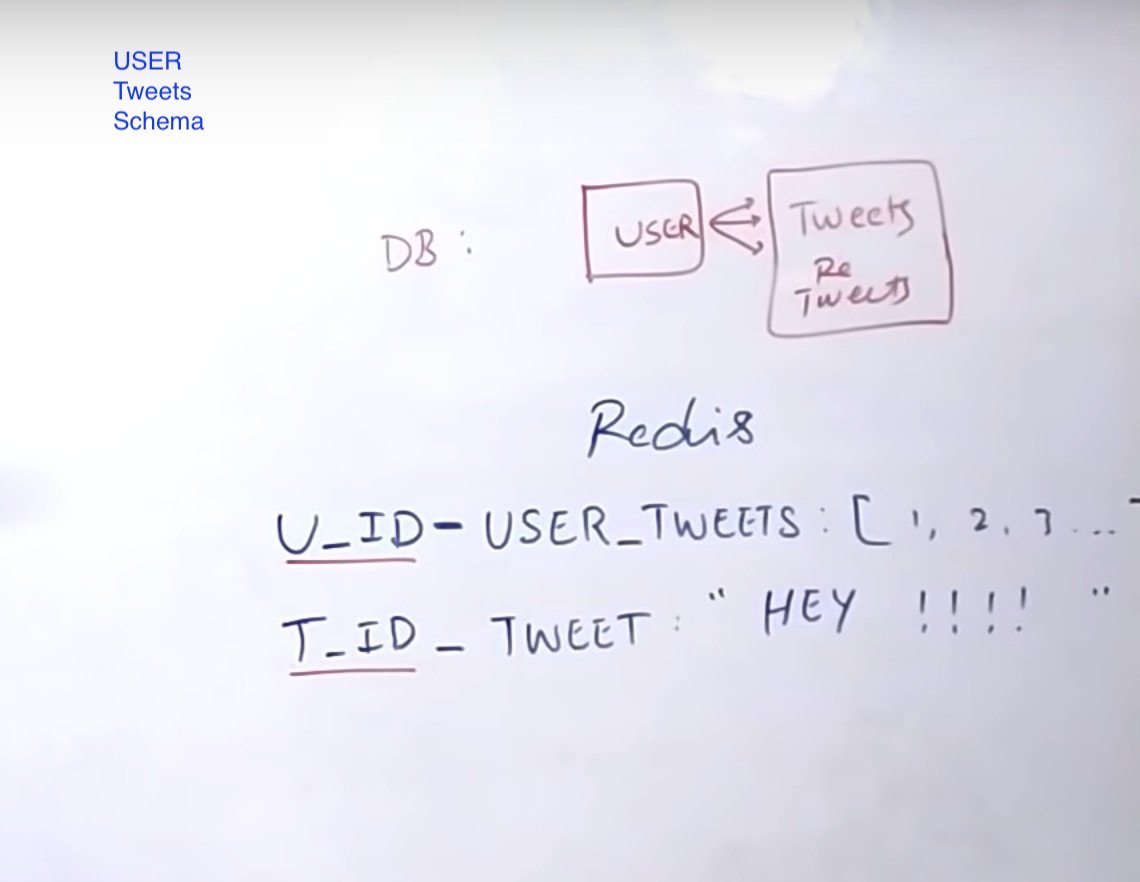 USER
Tweets
Schema
DB :
USER
Tweets
Re
Tweets
Redis
U_ID - USER_TWEETS : [ 1, 2, 3 ...
T_ID _ TWEET : " HEY !!!! "